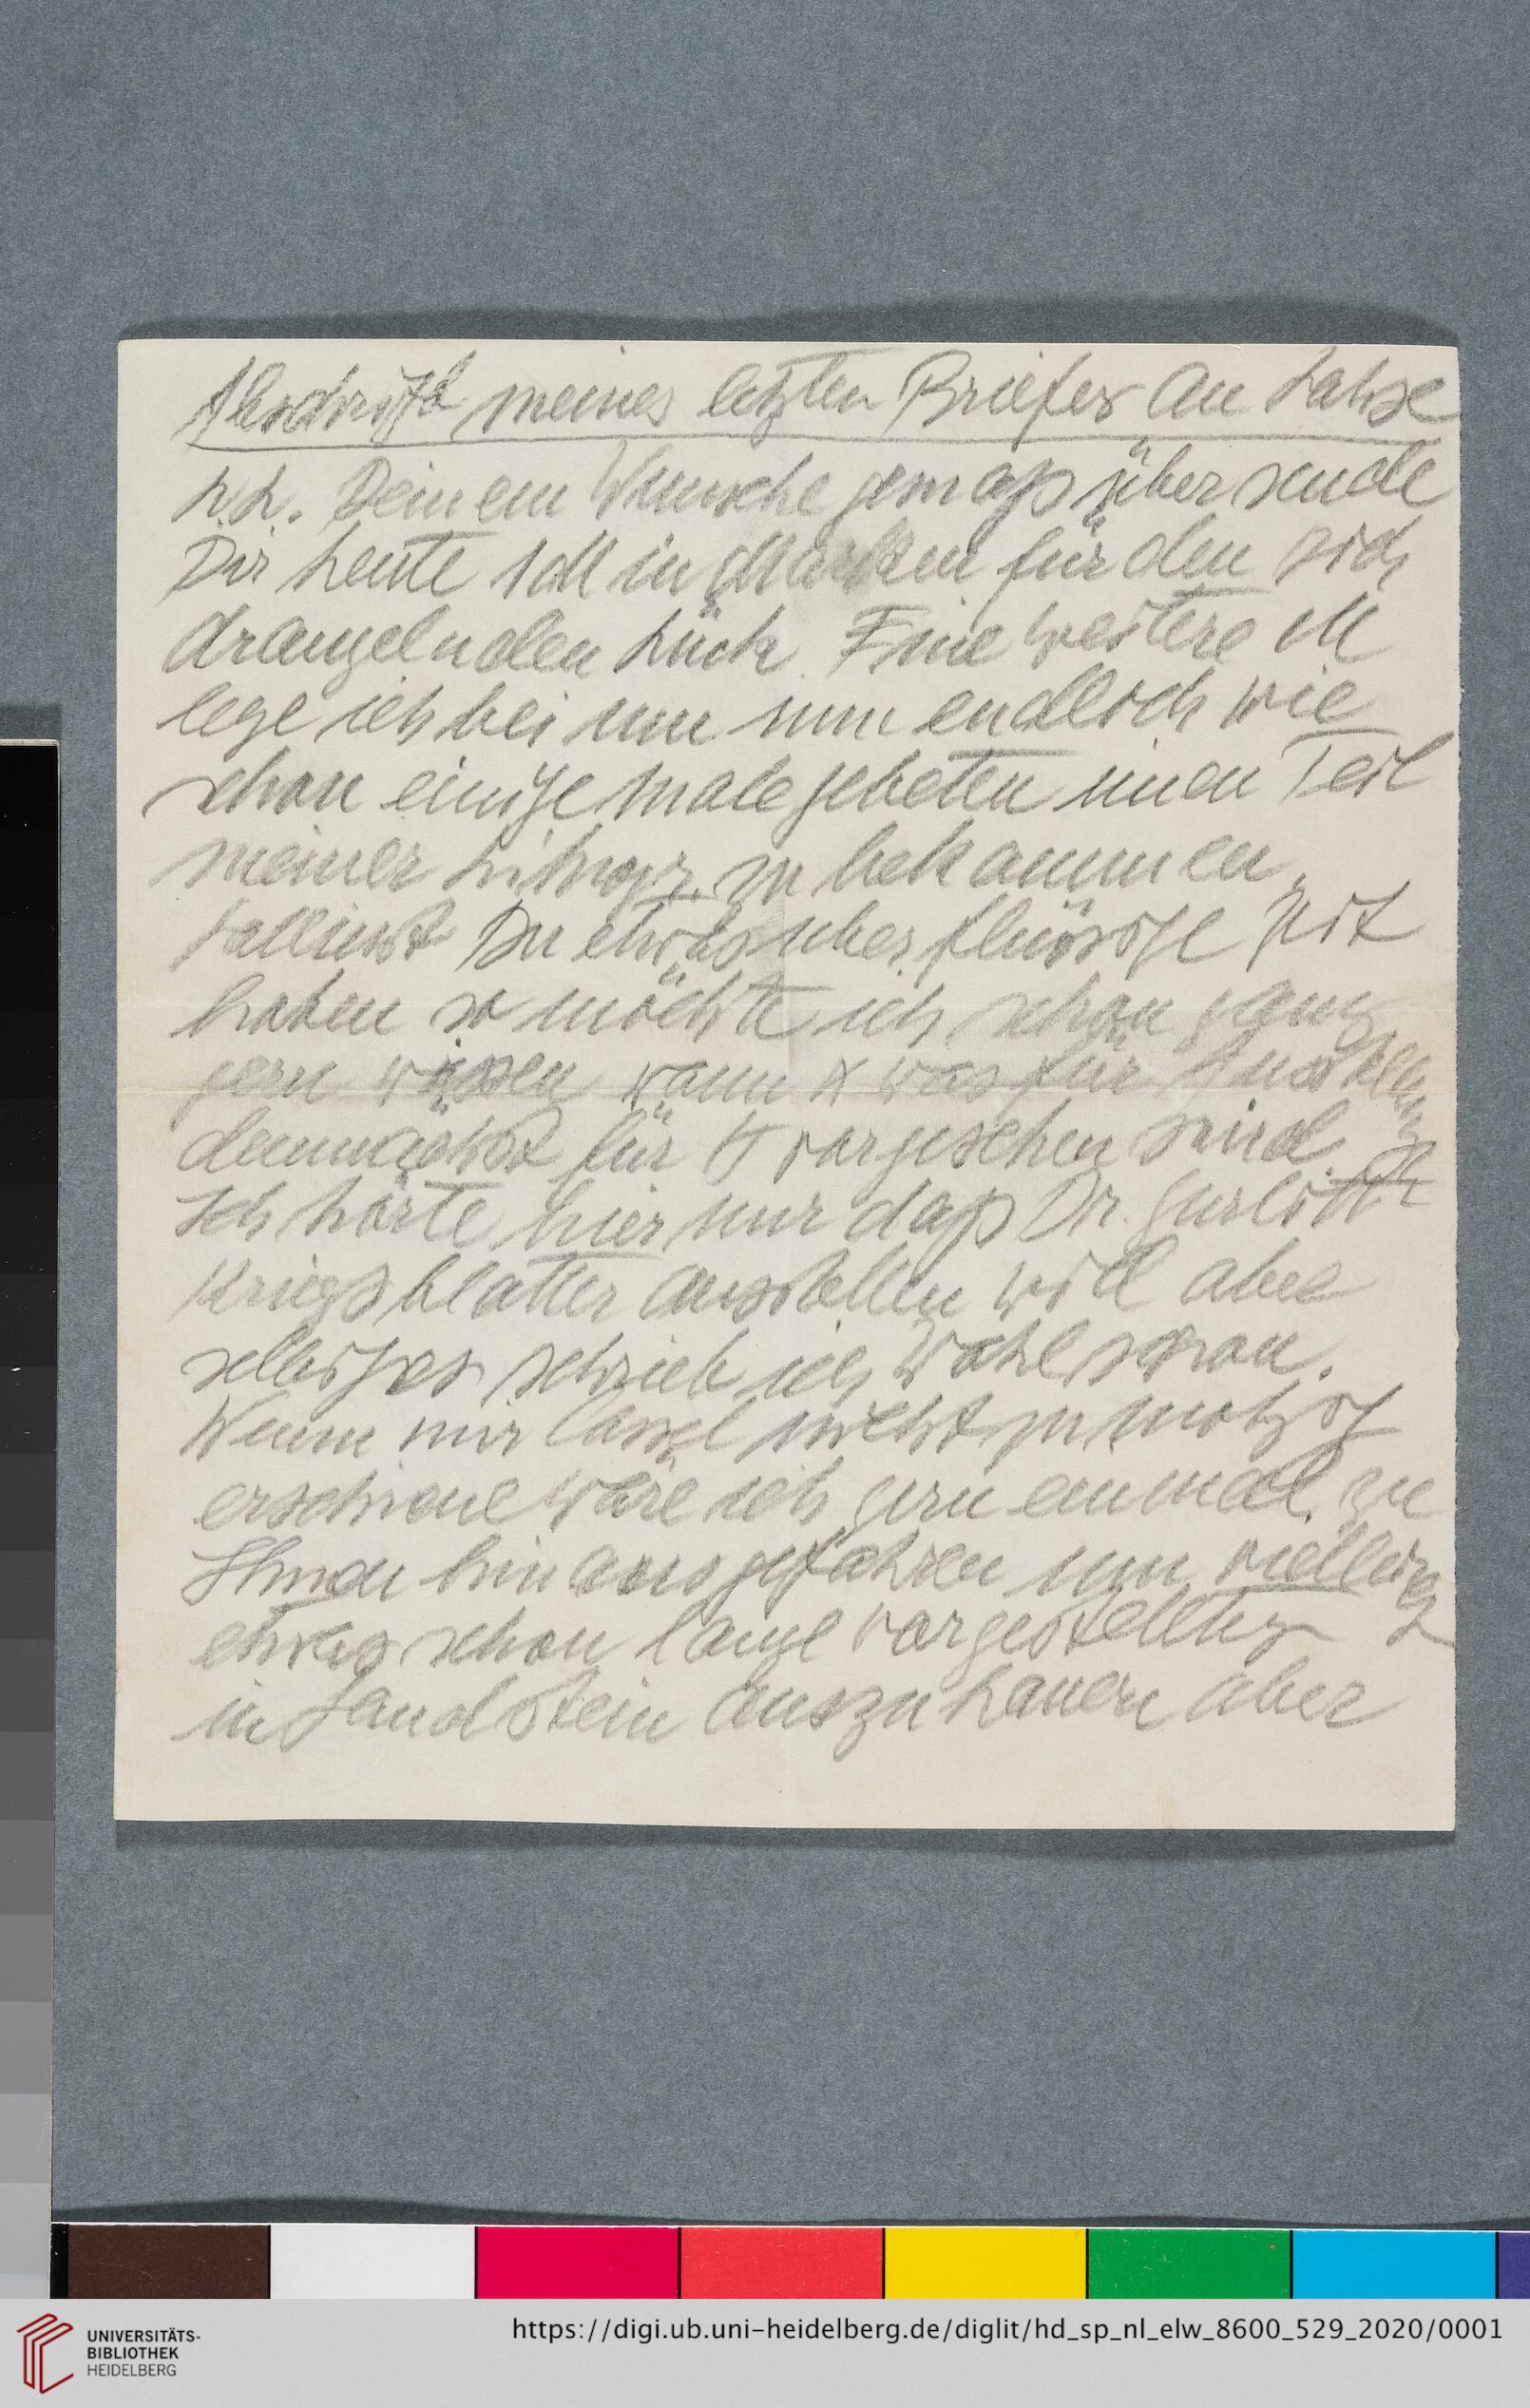 Abschrift meines letzten Briefes an
L. L. Deinem Wunsche gemäß übersende
Dir heute 1 M in Marken für den sich
drängelnden Lück. Eine weitere M
lege ich bei um nun endlich wie
schon einige male gebeten einen Teil
meiner Lithogr. zu bekommen.
Solltest Du etwas überflüssige Zeit
haben so möchte ich schon ganz
gern wissen wann & was für Ausstellung
demnächst für vorgesehen sind.
Ich hörte hier nur daß Dr. Gurlitt
Kriegsblätter ausstellen will aber
selbiges schrieb ich wohl schon.
Wenn mir Cassel nicht zu motzig
erschiene wäre ich gern einmal zu
Ihnen hinausgefahren um
etwas schon lange vorgestelltes
in Sandstein auszuhauen aber
UNIVERSITÄTS-
BIBLIOTHEK
HEIDELBERG
https://digi.ub.uni-heidelberg.de/diglit/hd_sp_nl_elw_8600_529_2020/0001